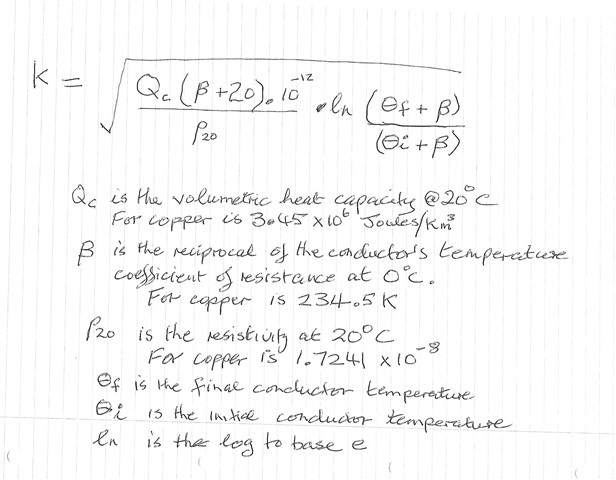 k = √( Qc (β + 20) . 10⁻¹² / ρ20 • ln ( (θf + β) / (θi + β) ) )
Qc is the volumetric heat capacity @ 20°C
For copper is 3.45 × 10⁶ Joules/Km³
β is the reciprocal of the conductor's temperature
coefficient of resistance at 0°C.
For copper is 234.5 K
ρ20 is the resistivity at 20°C
For copper is 1.7241 × 10⁻⁸
θf is the final conductor temperature
θi is the initial conductor temperature
ln is the log to base e